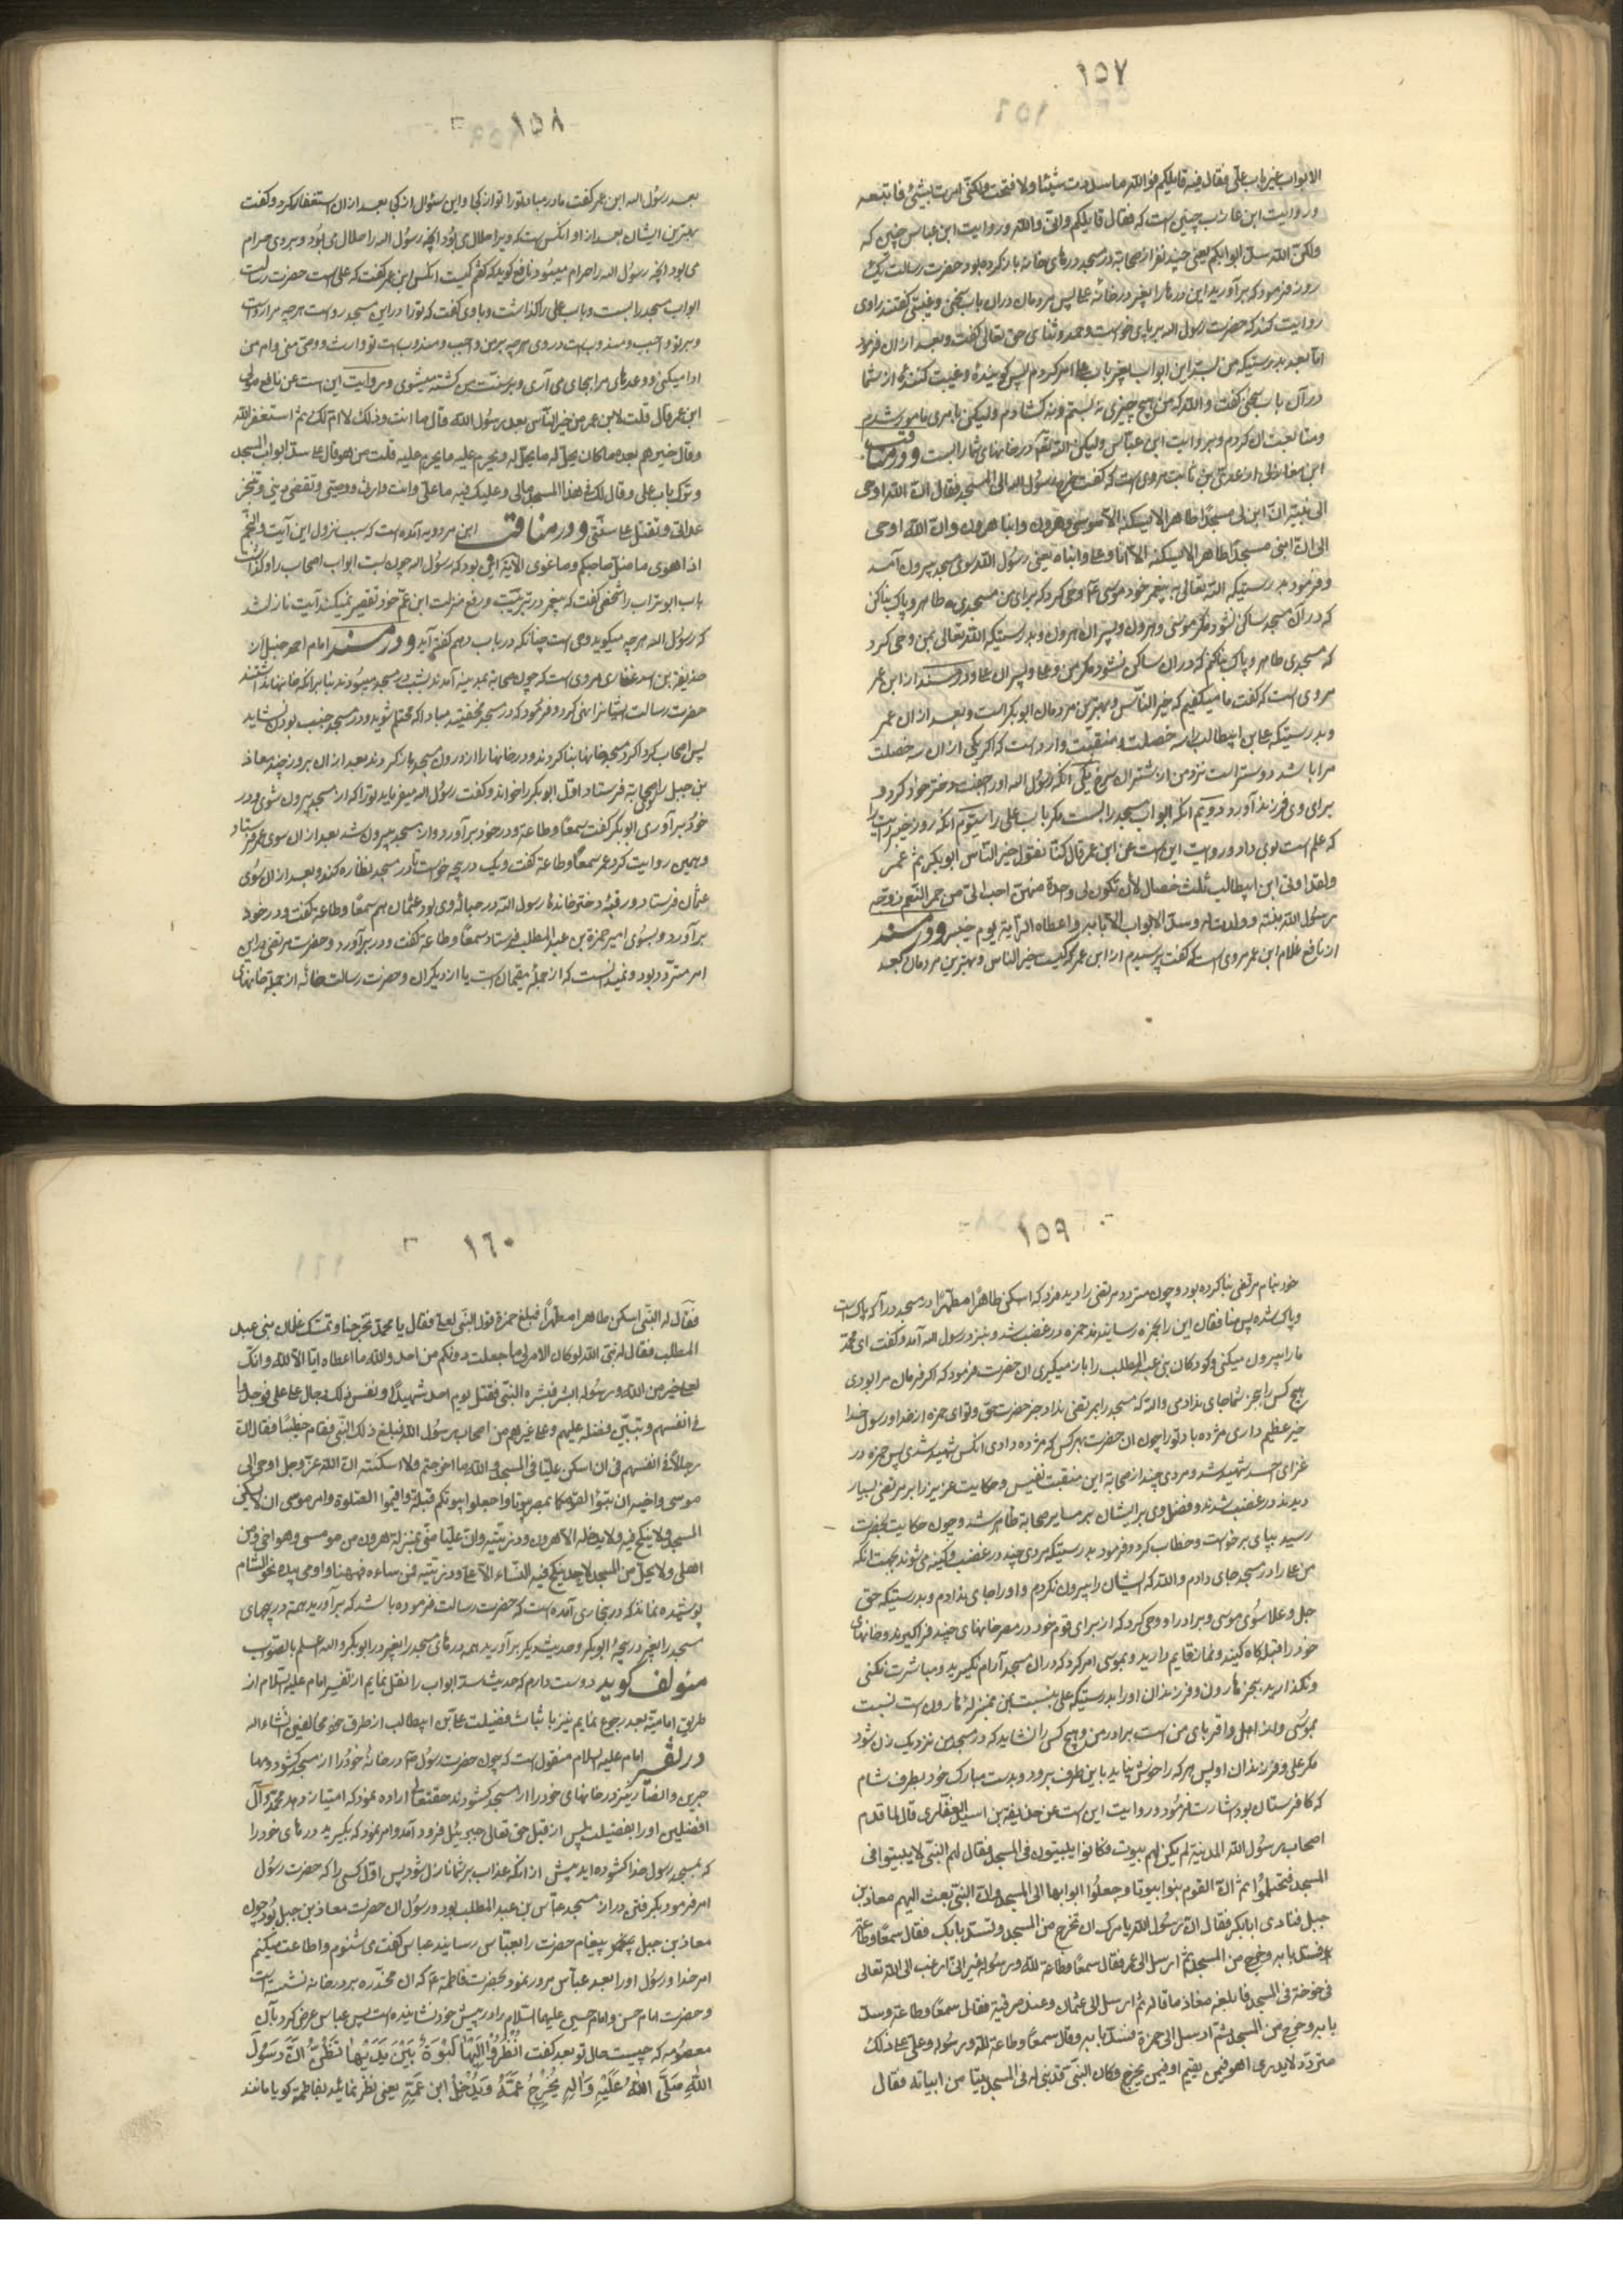 ١٥٧
الابواب غیر باب علی فقال فیه قایلکم فوالله ما سددت شیئا ولا فتحت ولکنی امرت بشیئ فاتبعه
و روایت ابن عازب چنین است که فقال قایلکم وانی والله و روایت ابن عباس چنین که
ولکن الله سد ابوابکم یعنی چند نفر از صحابه در مسجد درهای خانه باز کرده بود حضرت رسالت یک
روز فرمود که برآورید این درها را بغیر در خانه علی پس مردمان دران باب سخن و غیبتی گفتند راوی
روایت کند که حضرت رسول الله بر پای خواست و حمد و ثنای حق تعالی گفت و بعد ازان فرمود
اما بعد بدرستیکه من بستن این ابواب بغیر باب علی امر کردم پس گوینده و غیبت کننده از شما
در آن باب سخن گفت والله که من هیچ چیزی نه بستم و نه گشادم ولیکن بامری مامور شدم
و متابعت آن کردم و بروایت ابن عباس ولیکن الله تعه درخانهای شما را بست و در مناقب
ابن مغازلی از عدی بن ثابت مروی است که گفت خرج رسول الله الی المسجد فقال ان الله اوحی
الی نبیه ان ابن لی مسجدا طاهرا لایسکنه الا موسی وهرون وابنا هرون وان الله اوحی
الی ان ابنی مسجدا طاهرا لایسکنه الا انا وعلی وابناه یعنی رسول الله سوی مسجد بیرون آمد
و فرمود بدرستیکه الله تعالی به پیغمبر خود موسی ع وحی کرد که برای من مسجدی طاهر و پاک بنا کن
که در آن مسجد ساکن نشود مگر موسی و هرون و پسران هرون و بدرستیکه الله تعالی بمن وحی کرد
که مسجدی طاهر و پاک بنا کنم که دران ساکن نشود مگر من و علی و پسران علی و در مسند از ابن عمر
مروی است که گفت ما میگفتیم که خیر الناس و بهترین مردمان ابوبکر است و بعد ازان عمر
و بدرستیکه علی بن ابیطالب را سه خصلت و منقبت وارد است که اگر یکی ازان سه خصلت
مرا باشد دوستر است نزد من از شتران سرخ یکی آنکه رسول الله او را جفت دختر خود کرد و
برای وی فرزند آورد دویم آنکه ابواب مسجد را بست مگر باب علی را سیوم آنکه روز خیبر رایت را
که علم است بوی داد و روایت این است عن ابن عمر قال کنا نقول خیر الناس ابوبکر ثم عمر
ولقد اوتی ابن ابیطالب ثلث خصال لأن تکون لی واحدة منهن احب الی من حمر النعم زوجه
رسول الله بنته وولدت له وسد الابواب الا بابه واعطاه الرایة یوم خیبر و در مسند
از نافع غلام ابن عمر مروی است که گفت پرسیدم از ابن عمر که کیست خیر الناس و بهترین مردمان بعد
١٥٨
بعد رسول الله ابن عمر گفت مادر مباد تو را تو از کجا و این سئوال از کجا بعد ازان استغفار کرد و گفت
بهترین ایشان بعد از او آنکس است که ویرا حلال می بود آنچه رسول الله را حلال می بود و بروی حرام
می بود آنچه رسول الله را حرام میبود نافع گوید که گفتم کیست آنکس ابن عمر گفت که علی است حضرت رسالت
ابواب مسجد را بست و باب علی را گذاشت و با وی گفت که تو را در این مسجد رواست هرچه مرا رواست
و بر تو واجب و مندوب است در وی هرچه بر من واجب و مندوب است تو وارث و وصی منی وام من
ادا میکنی و وعدهای مرا بجای می آری و بر سنت من کشته میشوی و روایت این است عن نافع مولی
ابن عمر قال قلت لابن عمر من خیر الناس بعد رسول الله قال ما انت وذلک لا ام لک ثم استغفر الله
وقال خیرهم بعده من کان یحل له ما یحل له ویحرم علیه ما یحرم علیه قلت من هو قال علی سد ابواب المسجد
وترک باب علی وقال لک فی هذا المسجد مالی وعلیک فیه ما علی وانت وارثی ووصیی وتقضی دینی وتنجز
عداتی وتقتل علی سنتی و در مناقب ابن مردویه آمده است که سبب نزول این آیت والنجم
اذا هوی ما ضل صاحبکم وما غوی الایة این بود که رسول الله چون بست ابواب اصحاب را و گذاشت
باب ابوتراب را شخصی گفت که پیغمبر در تربیت و رفع منزلت ابن عم خود تقصیر نمیکند آیت نازل شد
که رسول الله هرچه میگوید وحی است چنانکه در باب دهم گفته آید و در مسند امام احمد حنبل از
حذیفة بن اسد غفاری مروی است که چون صحابه بمدینه آمدند بشب در مسجد میبودند بنابر آنکه خانها نداشتند
حضرت رسالت ایشانرا نهی کرد و فرمود که در مسجد مخفتید مباد که محتلم شوید و در مسجد جنب بودن نشاید
پس اصحاب گرد اگرد مسجد خانها بنا کردند و در خانها را از درون مسجد باز کردند بعد ازان بروز چند معاذ
بن جبل را بصحابه فرستاد اول ابوبکر را خواند و گفت رسول الله میفرماید تو را که از مسجد بیرون شوی و در
خود برآوری ابوبکر گفت سمعا وطاعة و در خود برآورد و از مسجد بیرون شد بعد ازان سوی عمر فرستاد
و همین روایت کرد عمر سمعا وطاعة گفت و یک دریچه خواست تا در مسجد نظاره کند و بعد ازان سوی
عثمان فرستاد و رقیه دختر خوانده رسول الله در حباله وی بود عثمان هم سمعا وطاعة گفت و در خود
برآورد و بسوی امیر حمزة بن عبد المطلب فرستاد سمعا وطاعة گفت و در برآورد و حضرت مرتضی در این
امر متردد بود و نمیدانست که از جمله مقیمان است یا از دیگران و حضرت رسالت خانه از جمله خانهای
١٥٩
خود بنام مرتضی بنا کرده بود و چون متردد مرتضی را دید فرمود که اسکن طاهرا مطهرا در مسجد درآ که پاک است
و پاک شده پس منافقان این را بحمزه رسانیدند حمزه در غضب شد و بنزد رسول الله آمد و گفت ای محمد
ما را بیرون میکنی و کودکان بنی عبد المطلب را باز میگیری آن حضرت فرمود که اگر فرمان مرا بودی
هیچ کس را بجز شما جای ندادمی والله که مسجد را بمرتضی نداد جز حضرت حق و تو ای حمزه از خدا و رسول خدا
خیر عظیم داری مژده باد تو را چون آن حضرت بهر کس که مژده دادی آنکس شهید شدی پس حمزه در
غزای احد شهید شد و مردی چند از صحابه این منقبت نفیس و حکایت عزیز را بر مرتضی بسیار
دیدند در غضب شدند و فضل وی بر ایشان بر سایر صحابه ظاهر شد و چون حکایت بحضرت
رسید بپای برخواست و خطاب کرد و فرمود بدرستیکه مردی چند در غضب و کینه می شوند بجهت آنکه
من علی را در مسجد جای دادم والله که ایشان را بیرون نکردم و او را جای ندادم و بدرستیکه حق
جل وعلا سوی موسی و برادر او وحی کرد که از برای قوم خود در مصر خانهای چند فرا گیرند و خانهای
خود را قبله گاه کنید و نماز قایم دارید و بموسی امر کرد که دران مسجد آرام نگیرید و مباشرت نکنی
ونگذارید بجز هارون و فرزندان او را بدرستیکه علی بنسبت بمن بمنزله هارون است بنسبت
بموسی و از اهل و اقربای من است برادر من و هیچ کس را نشاید که در مسجد من نزدیک زن شود
مگر علی و فرزندان او پس هرکه را خوش نیاید باین طرف برود و بدست مبارک خود بطرف شام
که کافرستان بود اشارت فرمود و روایت این است عن حذیفة بن اسید الغفاری قال لما قدم
اصحاب رسول الله المدینة لم یکن لهم بیوت فکانوا یبیتون فی المسجد فقال لهم النبی لا یبیتوا فی
المسجد فتحتلموا ثم ان القوم بنوا بیوتا وجعلوا ابوابها الی المسجد وان النبی بعث الیهم معاذ بن
جبل فنادی ابابکر فقال ان رسول الله یامرک ان تخرج من المسجد وتسد بابک فقال سمعا وطاعة
فسد بابه وخرج من المسجد ثم ارسل الی عمر فقال سمعا وطاعة لله ورسوله غیر انی ارغب الی الله تعالی
فی خوخة فی المسجد فابلغه معاذ ما قاله ثم ارسل الی عثمان وعنده رقیة فقال سمعا وطاعة وسد
بابه وخرج من المسجد ثم ارسل الی حمزة فسد بابه وقال سمعا وطاعة لله ورسوله وعلی علی ذلک
متردد لایدری اهو فیمن یقیم او فیمن یخرج وکان النبی قد بنی له فی المسجد بیتا من ابیاته فقال
١٦٠
فقال له النبی اسکن طاهرا مطهرا فبلغ حمزة قول النبی لعلی فقال یا محمد تخرجنا وتمسک غلمان بنی عبد
المطلب فقال له نبی الله لو کان الامر لی ما جعلت دونکم من احد والله ما اعطاه ایاه الا الله وانک
لعلی خیر من الله ورسوله ابشر فبشره النبی فقتل یوم احد شهیدا ونفس ذلک رجال علی علی فوجدوا
فی انفسهم وتبین فضله علیهم وعلی غیرهم من اصحاب رسول الله فبلغ ذلک النبی فقام خطیبا فقال ان
رجالا فی انفسهم فی ان اسکن علیا فی المسجد والله ما اخرجتهم ولا اسکنته ان الله عز وجل اوحی الی
موسی واخیه ان تبوءا لقومکما بمصر بیوتا واجعلوا بیوتکم قبلة واقیموا الصلوة وامر موسی ان لا یسکن
المسجد ولا ینکح فیه ولا یدخله الا هرون وذریته وان علیا منی بمنزلة هرون من موسی وهو اخی دون
اهلی ولا یحل من المسجد لاحد ینکح فیه النساء الا علی وذریته فمن ساءه فههنا واومی بیده نحو الشام
پوشیده نماند که در بخاری آمده است که حضرت رسالت فرموده باشد که برآورید همه دریچهای
مسجد را بغیر دریچه ابوبکر و حدیث دیگر برآورید همه درهای مسجد را بغیر در ابوبکر والله اعلم بالصواب
مئولف گوید دوست دارم که حدیث سد ابواب را نقل نمایم از تفسیر امام علیه السلام از
طریق امامیه بعد رجوع نمایم نیز باثبات فضیلت علی بن ابیطالب از طرق خود مخالفین انشاءالله
در تفسیر امام علیه السلام منقول است که چون حضرت رسول ص در خانه خود را از مسجد گشود و مها
جرین و انصار نیز در خانهای خود را از مسجد گشودند حقتعالی اراده نمود که امتیاز دهد محمد و آل
افضلین او را بفضیلت پس از قبل حق تعالی جبرئیل فرود آمد و امر نمود که بگیرید درهای خود را
که بمسجد رسول خدا گشوده اید پیش ازانکه عذاب بر شما نازل شود پس اول کسی را که حضرت رسول
امر فرمود بگرفتن در از مسجد عباس بن عبد المطلب بود و رسول آن حضرت معاذ بن جبل بود چون
معاذ بن جبل پیغام حضرت را بعباس رسانید عباس گفت می شنوم و اطاعت میکنم
امر خدا و رسول او را بعد عباس مرور نمود بحضرت فاطمه ع که آن مخدره بر در خانه نشسته است
و حضرت امام حسن و امام حسین علیهما السلام را در پیش خود نشانیده است پس عباس عرض کرد بآن
معصومه که چیست حال تو بعد گفت اُنْظُرُوا اِلَیْها کَلَبْوَةٍ بَیْنَ یَدَیْها تَظُنُّ اَنَّ رَسُولَ
اللهِ صَلَّی اللهُ عَلَیْهِ وَآلِهِ یُخْرِجُ عَمَّهُ وَیُدْخِلُ ابن عَمِّهِ یعنی نظر نمائید بفاطمه گویا مانند